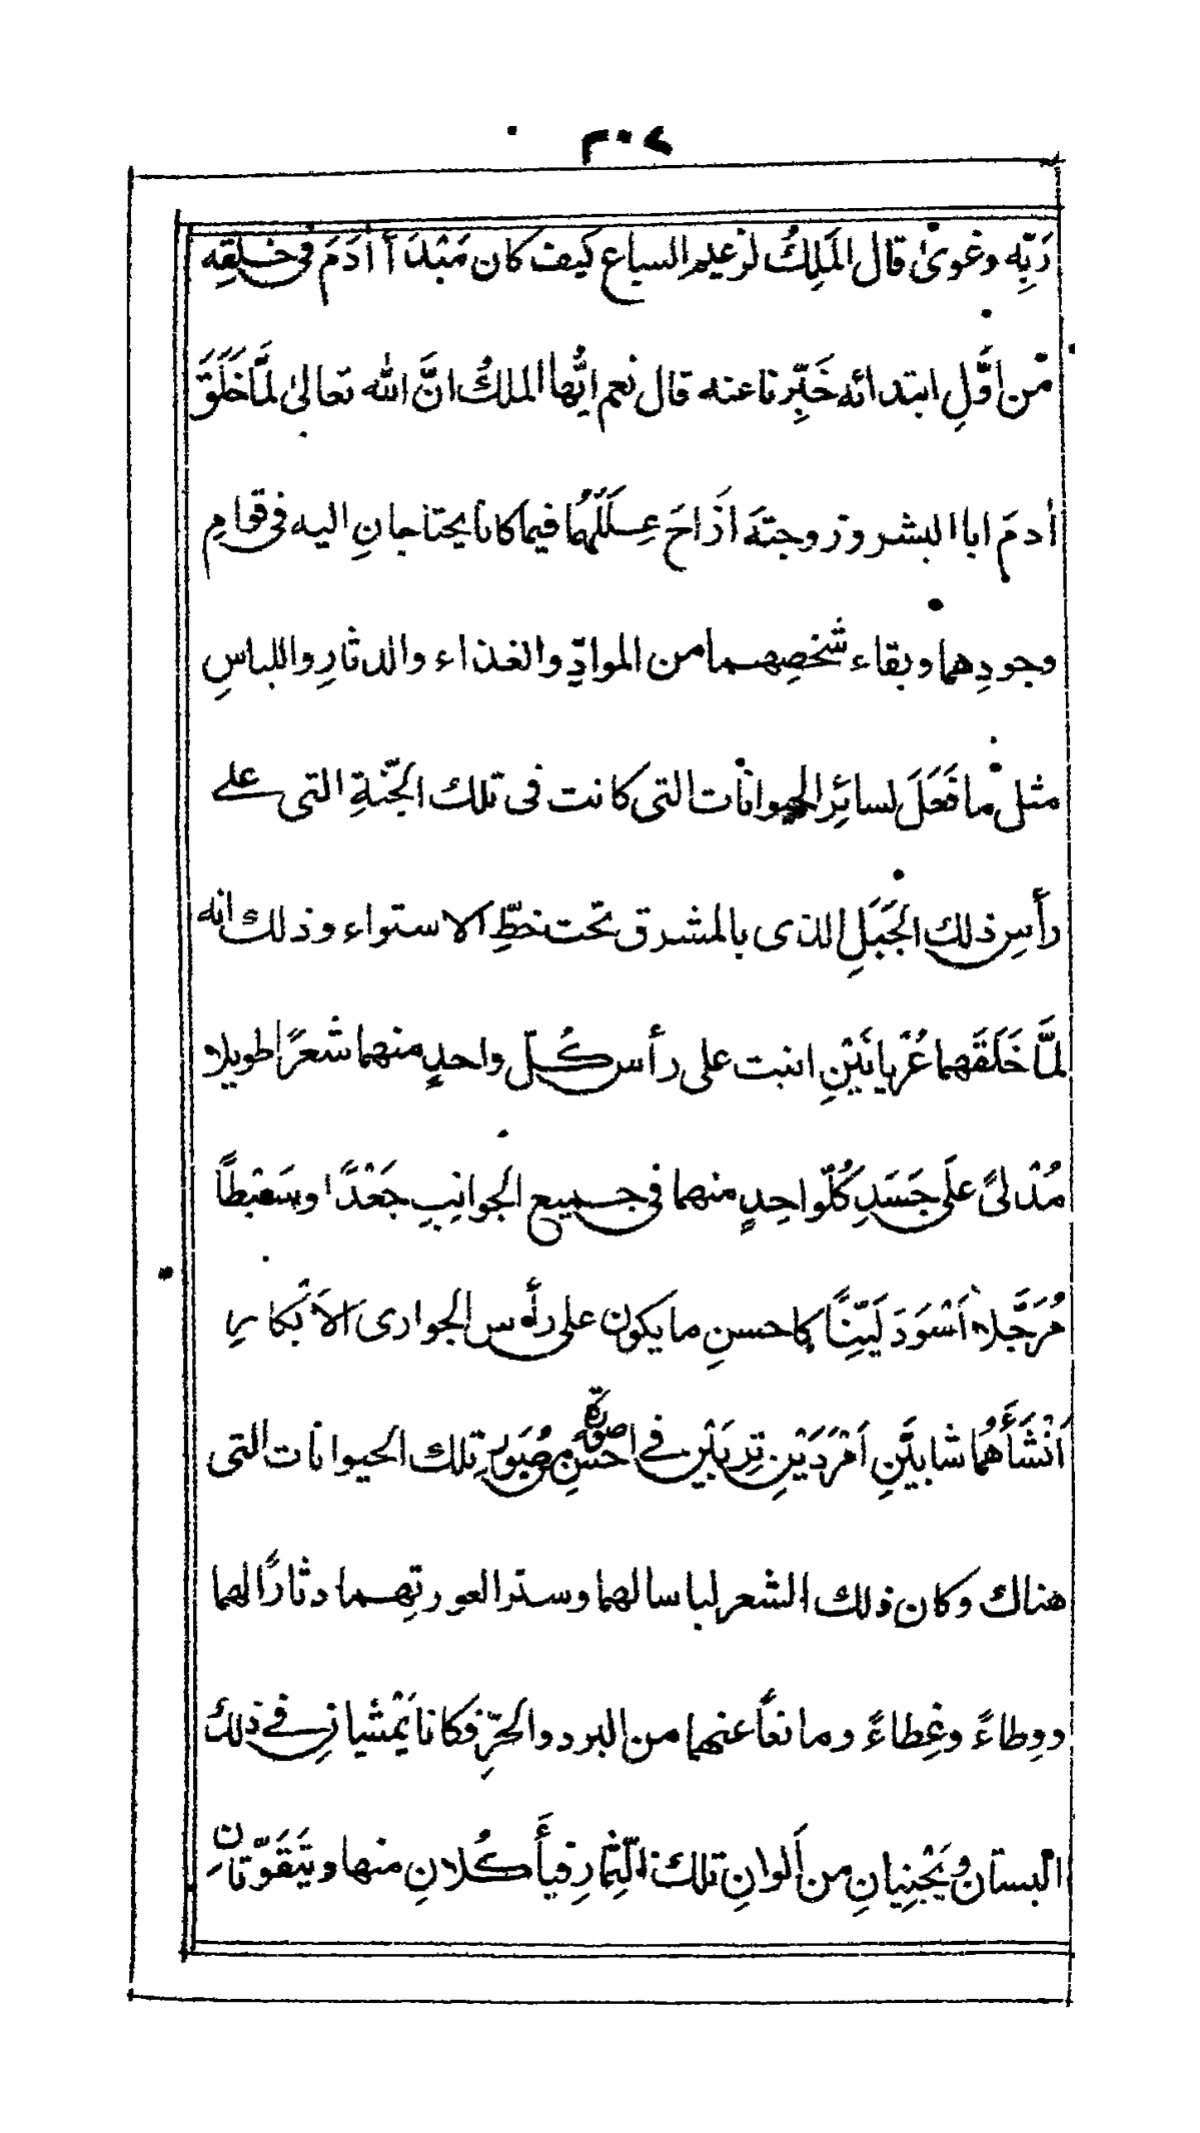 ٢٠٧
رَبِّه وغوىٰ قال المَلِكُ لزعيم السباع كيف كان مَبْدَأ أٰدَمَ فى خلقِه
من اوَّلِ ابتدائه خَبِّرنا عنه قال نعم ايُّها الملكُ انَّ الله تعالىٰ لمَّا خَلَقَ
أدمَ ابا البشر وزوجتَه اَزَاحَ عِلَلَهُما فيما كانا يحتاجانِ اليه فى قوامِ
وجودِهما وبقاء شخصِهما من الموادِّ والغذاء والدثارِ واللباسِ
مثل ما فَعَلَ لسائِرِ الحيوانات التى كانت فى تلك الجَّنةِ التى على
رأسِ ذلك الجَبَلِ الذى بالمشرق تحت خطِّ الاستواء وذلك انه
لمَّا خَلَقَهما عُرْيانَيْنِ انبت على رأس كُلِّ واحدٍ منهما شعرًا طويلا
مُدْلىً علَى جَسَدِ كُلِّ واحِدٍ منهما فى جميع الجوانِبِ جَعْدًا وسَبْطًا
مُرَجَّلا اَسْوَدَ لَيِّنًا كاحسنِ ما يكون على رأس الجوارى الاَبْكارِ
اَنْشَأَهُما شابَّيْنِ اَمْرَدَيْنِ تِرْبَيْنِ فے احسَنِ صورة من صُوَرِ تلك الحيوانات التى
هناك وكان ذلك الشعر لباسا لهما وسترا لعورتِهما دثارًا لهما
ووِطاءً وغِطاءً ومانعاً عنهما من البرد والحَرِّ فكانا يَمْشيانِ فے ذلك
البستان ويَجْنِيانِ من اَلوانِ تلك الثِّمارِ فيأَكُلانِ منها ويَتَقَوَّتان